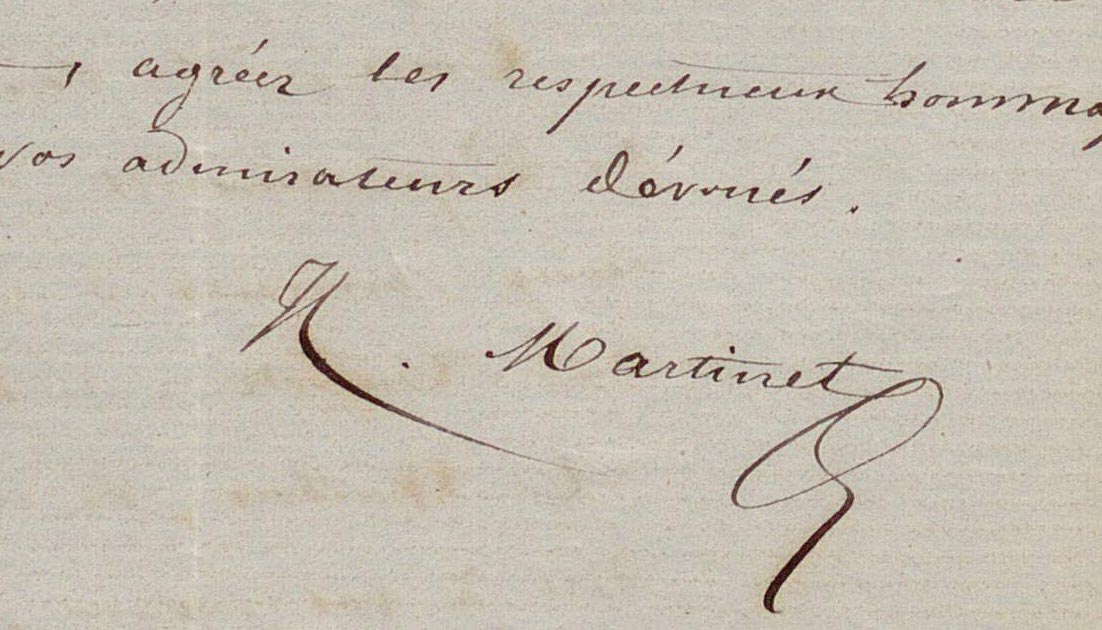 , agréer les respectueux hommag
vos admirateurs dévoués.
Martinet